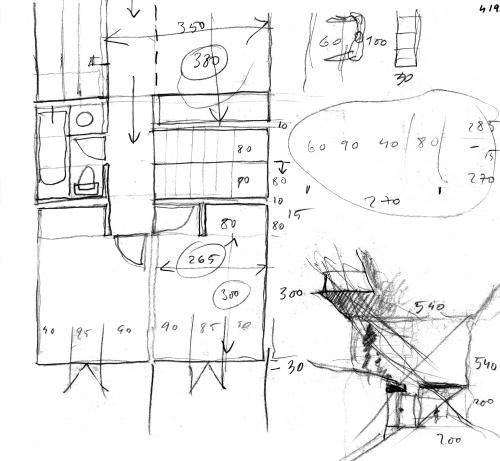 419
350
380
60
100
30
10
80
90
80
10
15
80
80
265
300
300
30
90
85
90
90
85
90
60 90 40 80
285
-
15
270
270
540
540
200
200